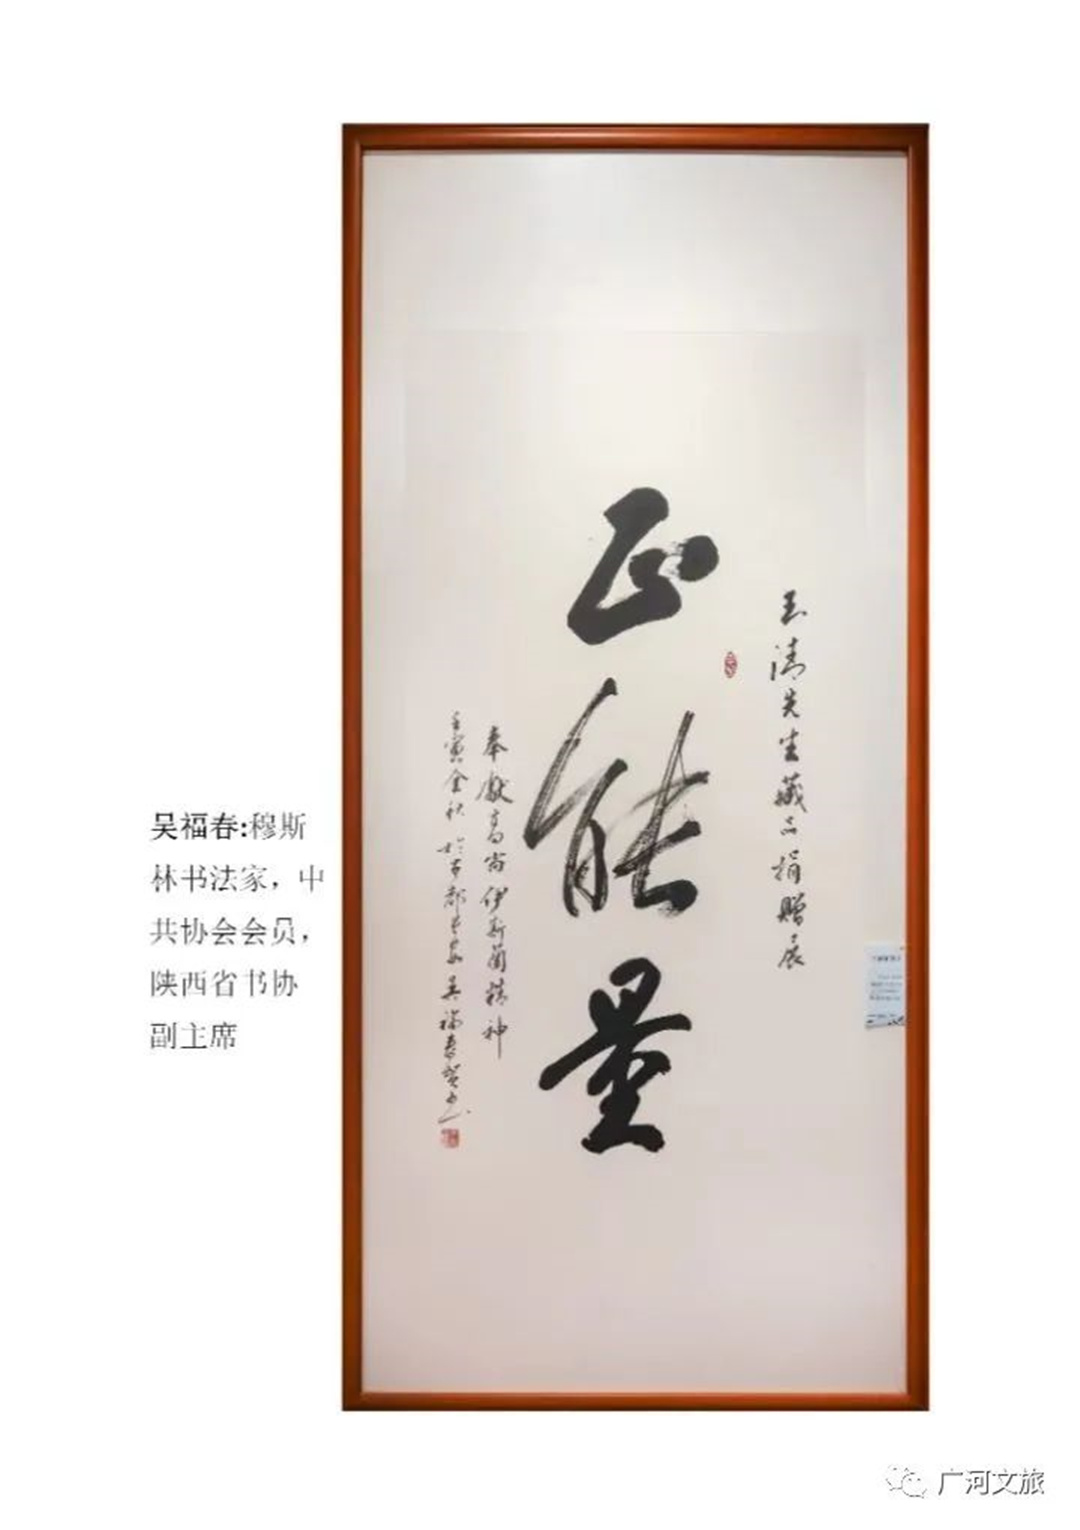 玉清先生藏品捐赠展
正能量
奉献高尚伊斯兰精神
壬寅金秋於古都长安吴福春贺书
吴福春:穆斯
林书法家，中
共协会会员，
陕西省书协
副主席
广河文旅